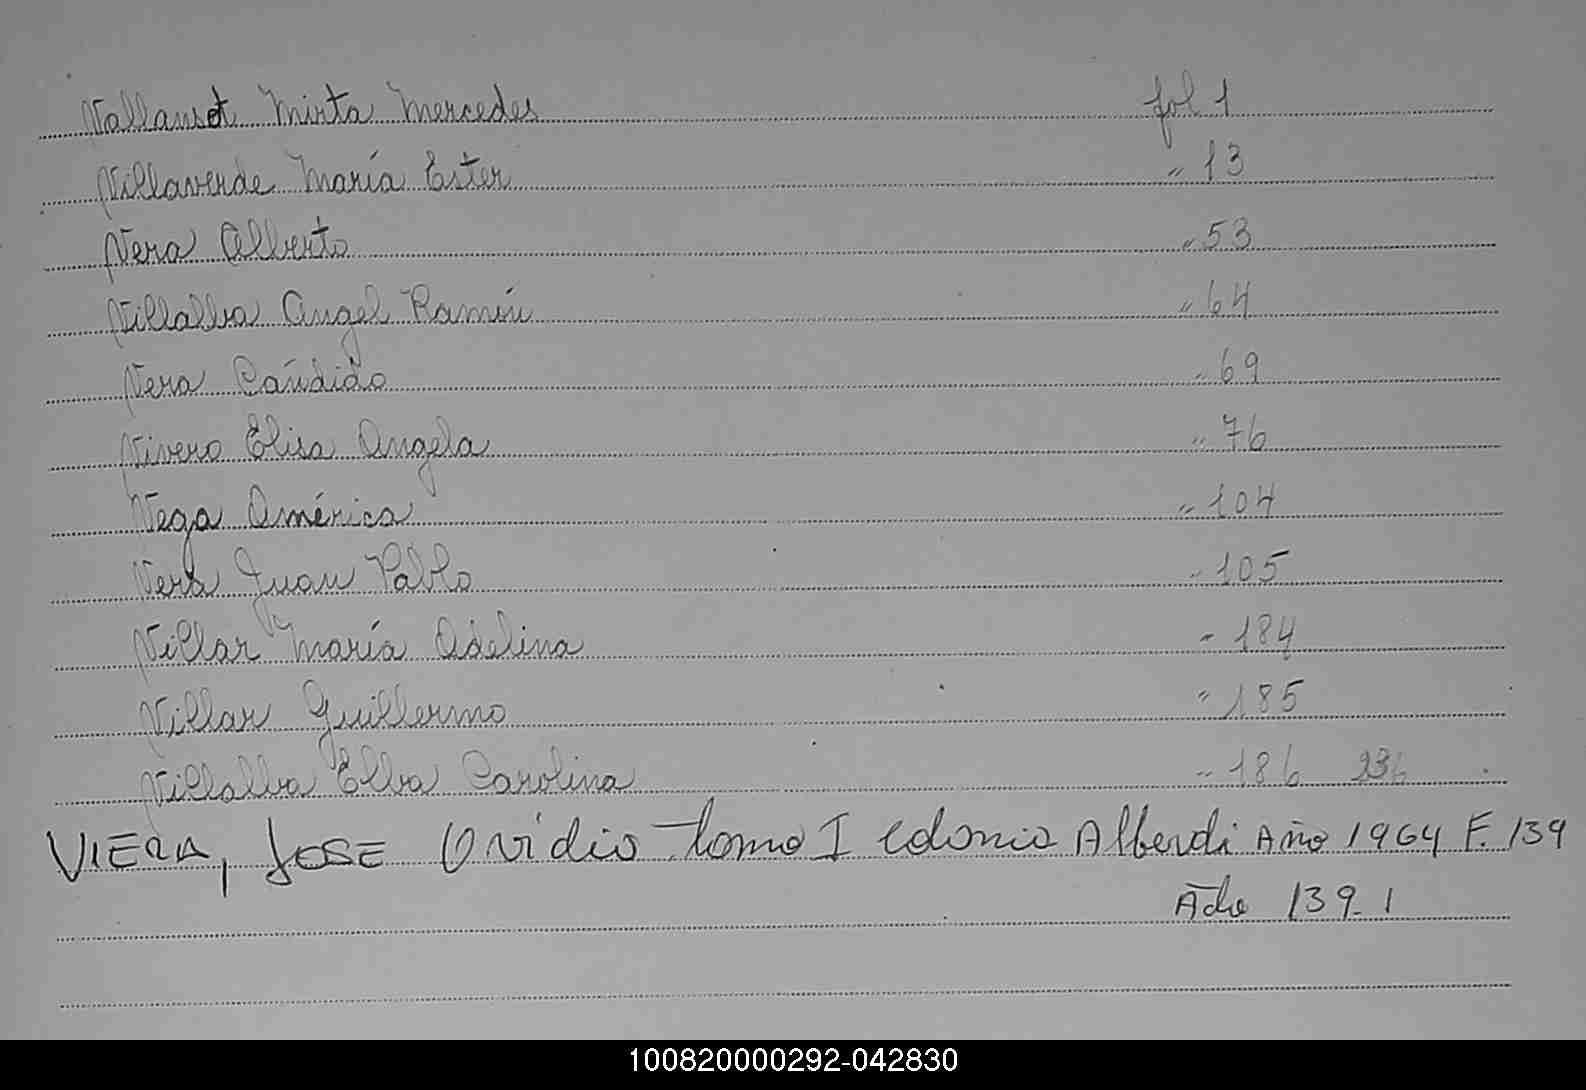 Vallansot Mirta Mercedes fol 1
Villaverde María Ester " 13
Vera Alberto " 53
Villalba Angel Ramón " 64
Vera Cándido " 69
Vivero Elisa Angela " 76
Vega América " 104
Vera Juan Pablo " 105
Villar María Adelina " 184
Villar Guillermo " 185
Villalba Elba Carolina " 186 236
VIERA, JOSE Ovidio tomo I Colonia Alberdi Año 1964 F. 139
139 1
100820000292-042830